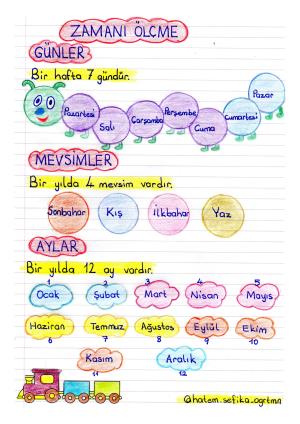 ZAMANI ÖLÇME
GÜNLER
Bir hafta 7 gündür.
Pazartesi
Salı
Çarşamba
Perşembe
Cuma
Cumartesi
Pazar
MEVSİMLER
Bir yılda 4 mevsim vardır.
Sonbahar Kış İlkbahar Yaz
AYLAR
Bir yılda 12 ay vardır.
1 2 3 4 5
Ocak Şubat Mart Nisan Mayıs
Haziran Temmuz Ağustos Eylül Ekim
6 7 8 9 10
Kasım Aralık
11 12
@hatem.sefika.ogrtmn